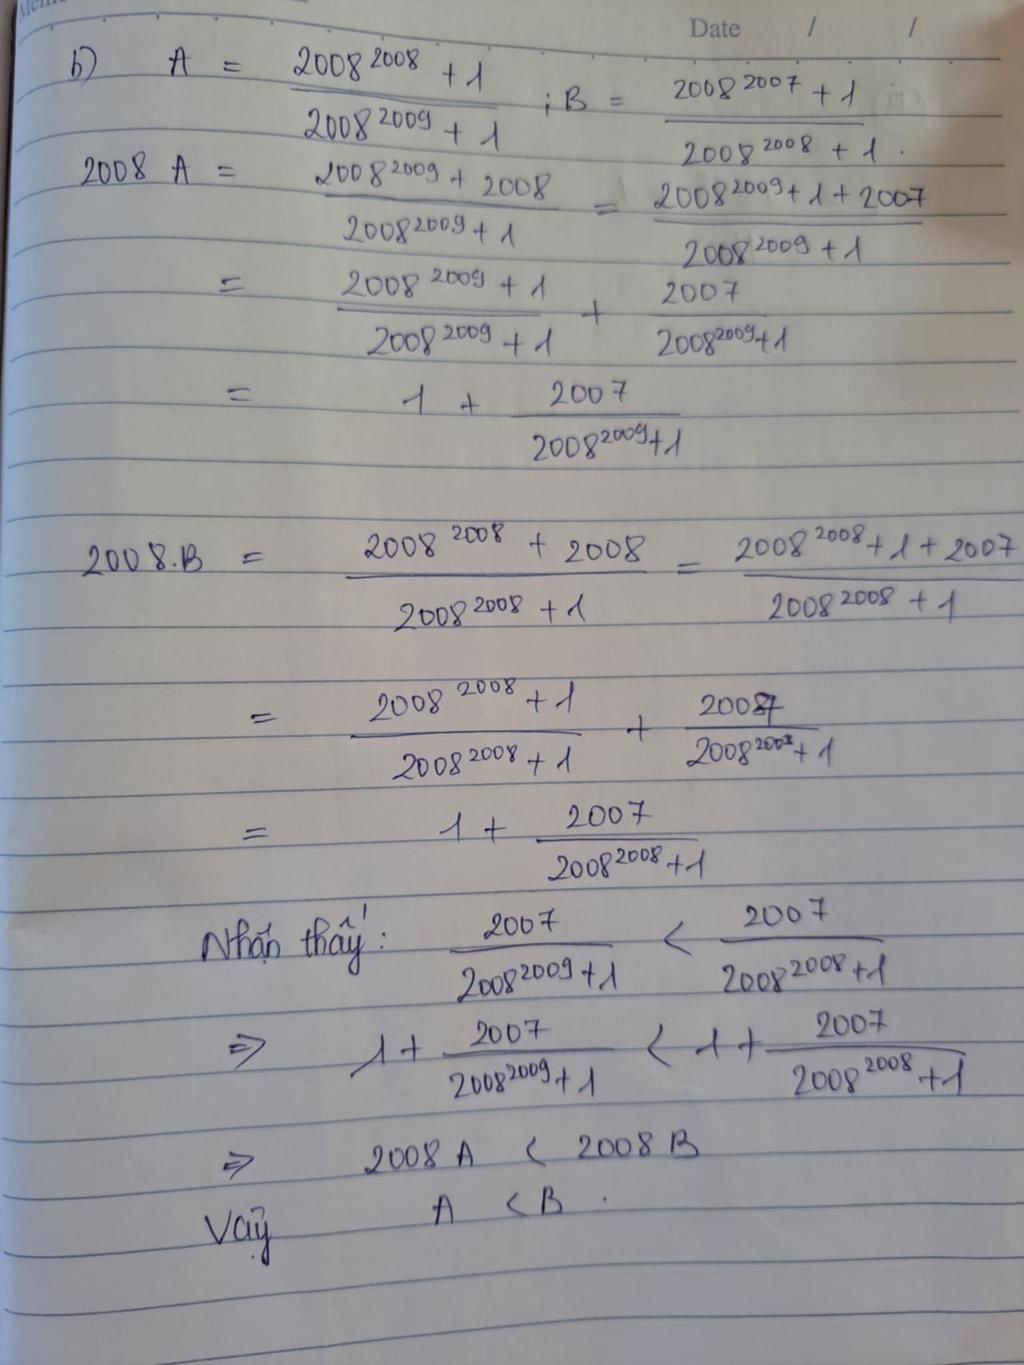 Date / /
b) A = (2008^2008 + 1)/(2008^2009 + 1) ; B = (2008^2007 + 1)/(2008^2008 + 1).
2008 A = (2008^2009 + 2008)/(2008^2009 + 1) = (2008^2009 + 1 + 2007)/(2008^2009 + 1)
= (2008^2009 + 1)/(2008^2009 + 1) + 2007/(2008^2009 + 1)
= 1 + 2007/(2008^2009 + 1)
2008.B = (2008^2008 + 2008)/(2008^2008 + 1) = (2008^2008 + 1 + 2007)/(2008^2008 + 1)
= (2008^2008 + 1)/(2008^2008 + 1) + 2007/(2008^2008 + 1)
= 1 + 2007/(2008^2008 + 1)
Nhận thấy: 2007/(2008^2009 + 1) < 2007/(2008^2008 + 1)
⇒ 1 + 2007/(2008^2009 + 1) < 1 + 2007/(2008^2008 + 1)
⇒ 2008 A < 2008 B
Vậy A < B.